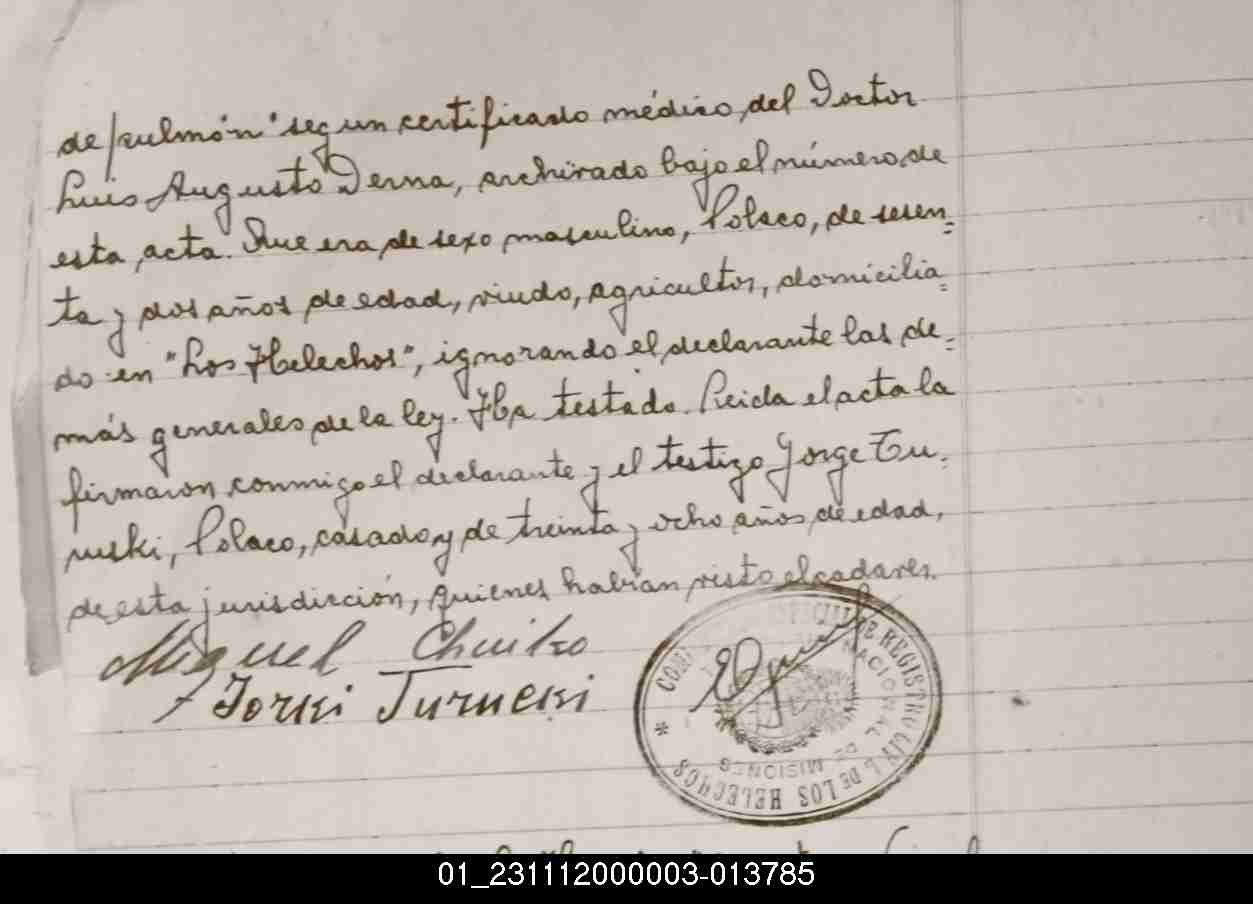 de pulmón" segun certificado médico, del Doctor
Luis Augusto Derna, archivado bajo el número de
esta acta. Que era de sexo masculino, Polaco, de sesen=
ta y dos años de edad, viudo, agricultor, domicilia=
do en "Los Helechos", ignorando el declarante las de=
más generales de la ley. Ha testado. Leida el acta la
firmaron conmigo el declarante y el testigo Jorge Tu=
ruski, Polaco, casado, y de treinta y ocho años de edad,
de esta jurisdicción, quienes habían visto el cadaver.
Miguel Chuiko
Jorki Turucki
REGISTRO CIVIL DE LOS HELECHOS
NACIONAL DE MISIONES
01_231112000003-013785